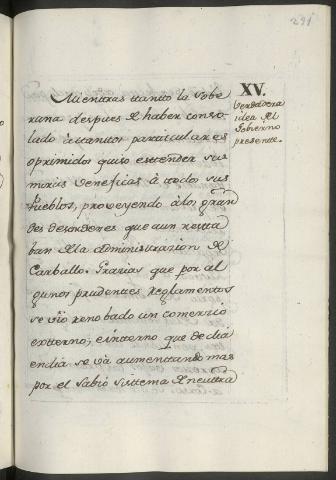 291
XV.
Verdadera
idea del
Gobierno
presente.
Mientras tanto la Sobe
rana despues de haber conso-
lado à tantos particulares
oprimidos quiso estender sus
miras beneficas à todos sus
Pueblos, proveyendo à los gran
des desordenes que aun resta
ban de la administrazion de
Carballo. Grazias que por al
gunos prudentes Reglamentos
se vio renobado un comerzio
externo, è interno que de dia
en dia se và aumentando mas
por el sabio sistema de neutra